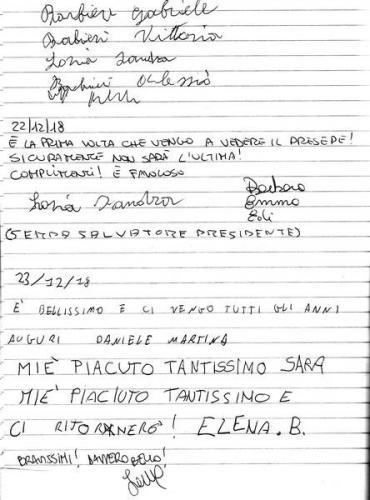 Barbieri Gabriele
Barbieri Vittoria
Sonia Sandra
Barbieri Alessio
22/12/18
È LA PRIMA VOLTA CHE VENGO A VEDERE IL PRESEPE!
SICURAMENTE NON SARÀ L'ULTIMA!
COMPLIMENTI! È FAVOLOSO
Sandra Barbara
Emma
(GERPA SALVATORE PRESIDENTE)
23/12/18
E' BELLISSIMO E CI VENGO TUTTI GLI ANNI
AUGURI DANIELE MARTINA
MIÈ PIACUTO TANTISSIMO SARA
MIE' PIACIUTO TANTISSIMO E
CI RITORNERÒ! ELENA.B.
BRAVISSIMI! DAVVERO BELLO!